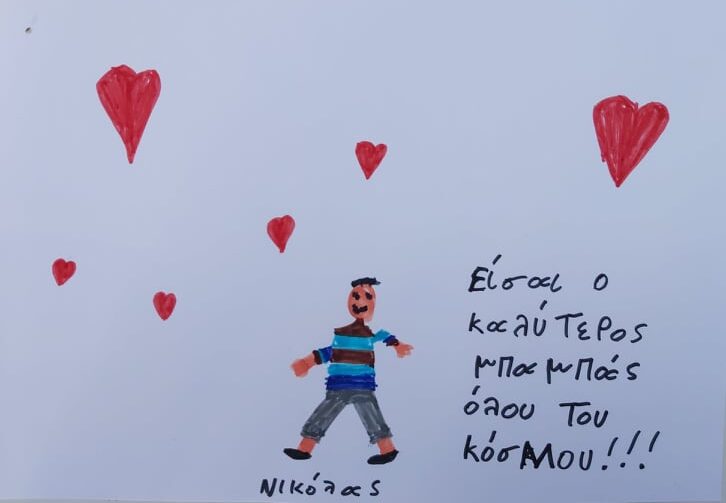 Είσαι ο
καλύτερος
μπαμπάς
όλου του
κόσμου!!!
Νικόλας